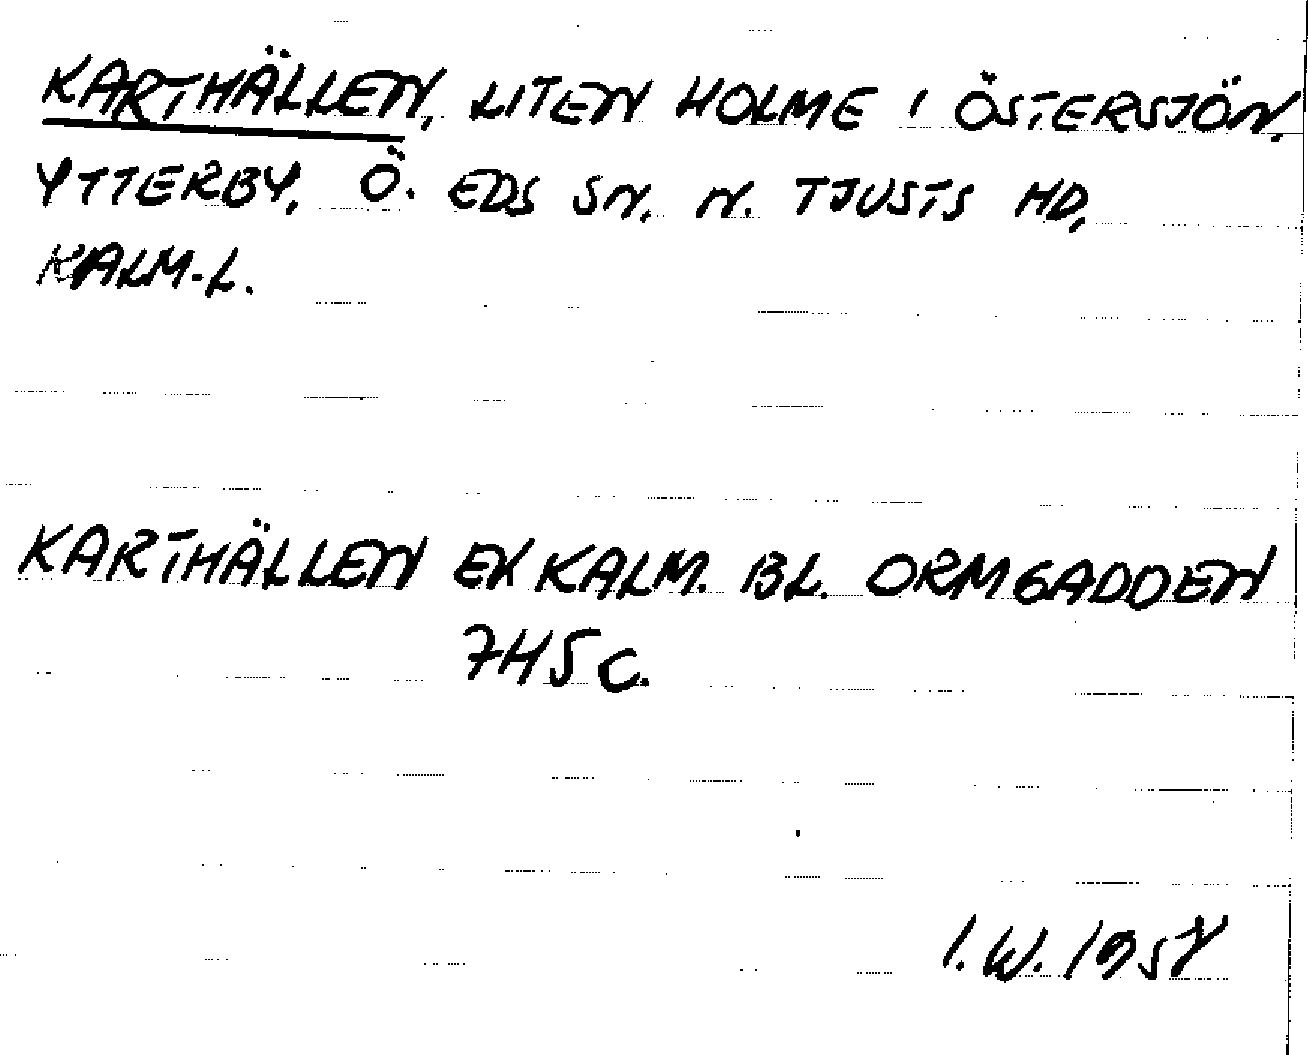 KARTHÄLLEN, LITEN HOLME I ÖSTERSJÖN,
YTTERBY, Ö. EDS SN, N. TJUSTS HD,
KALM-L.
KARTHÄLLEN EK KALM. BL. ORMGADDEN
7H5c.
I.W. 1957